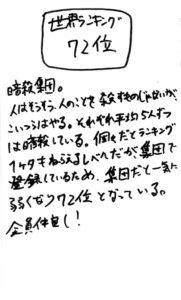 世界ランキング
72位
暗殺集団。
人はそうそう人のことを殺すものじゃないが、
こいつらはやる。それぞれ平均5人ずつ
は暗殺している。個々だとランキング
1ケタもねらえるレベルだが、集団で
登録しているため、集団だと一気に
弱くなり72位となっている。
全員仲良し!